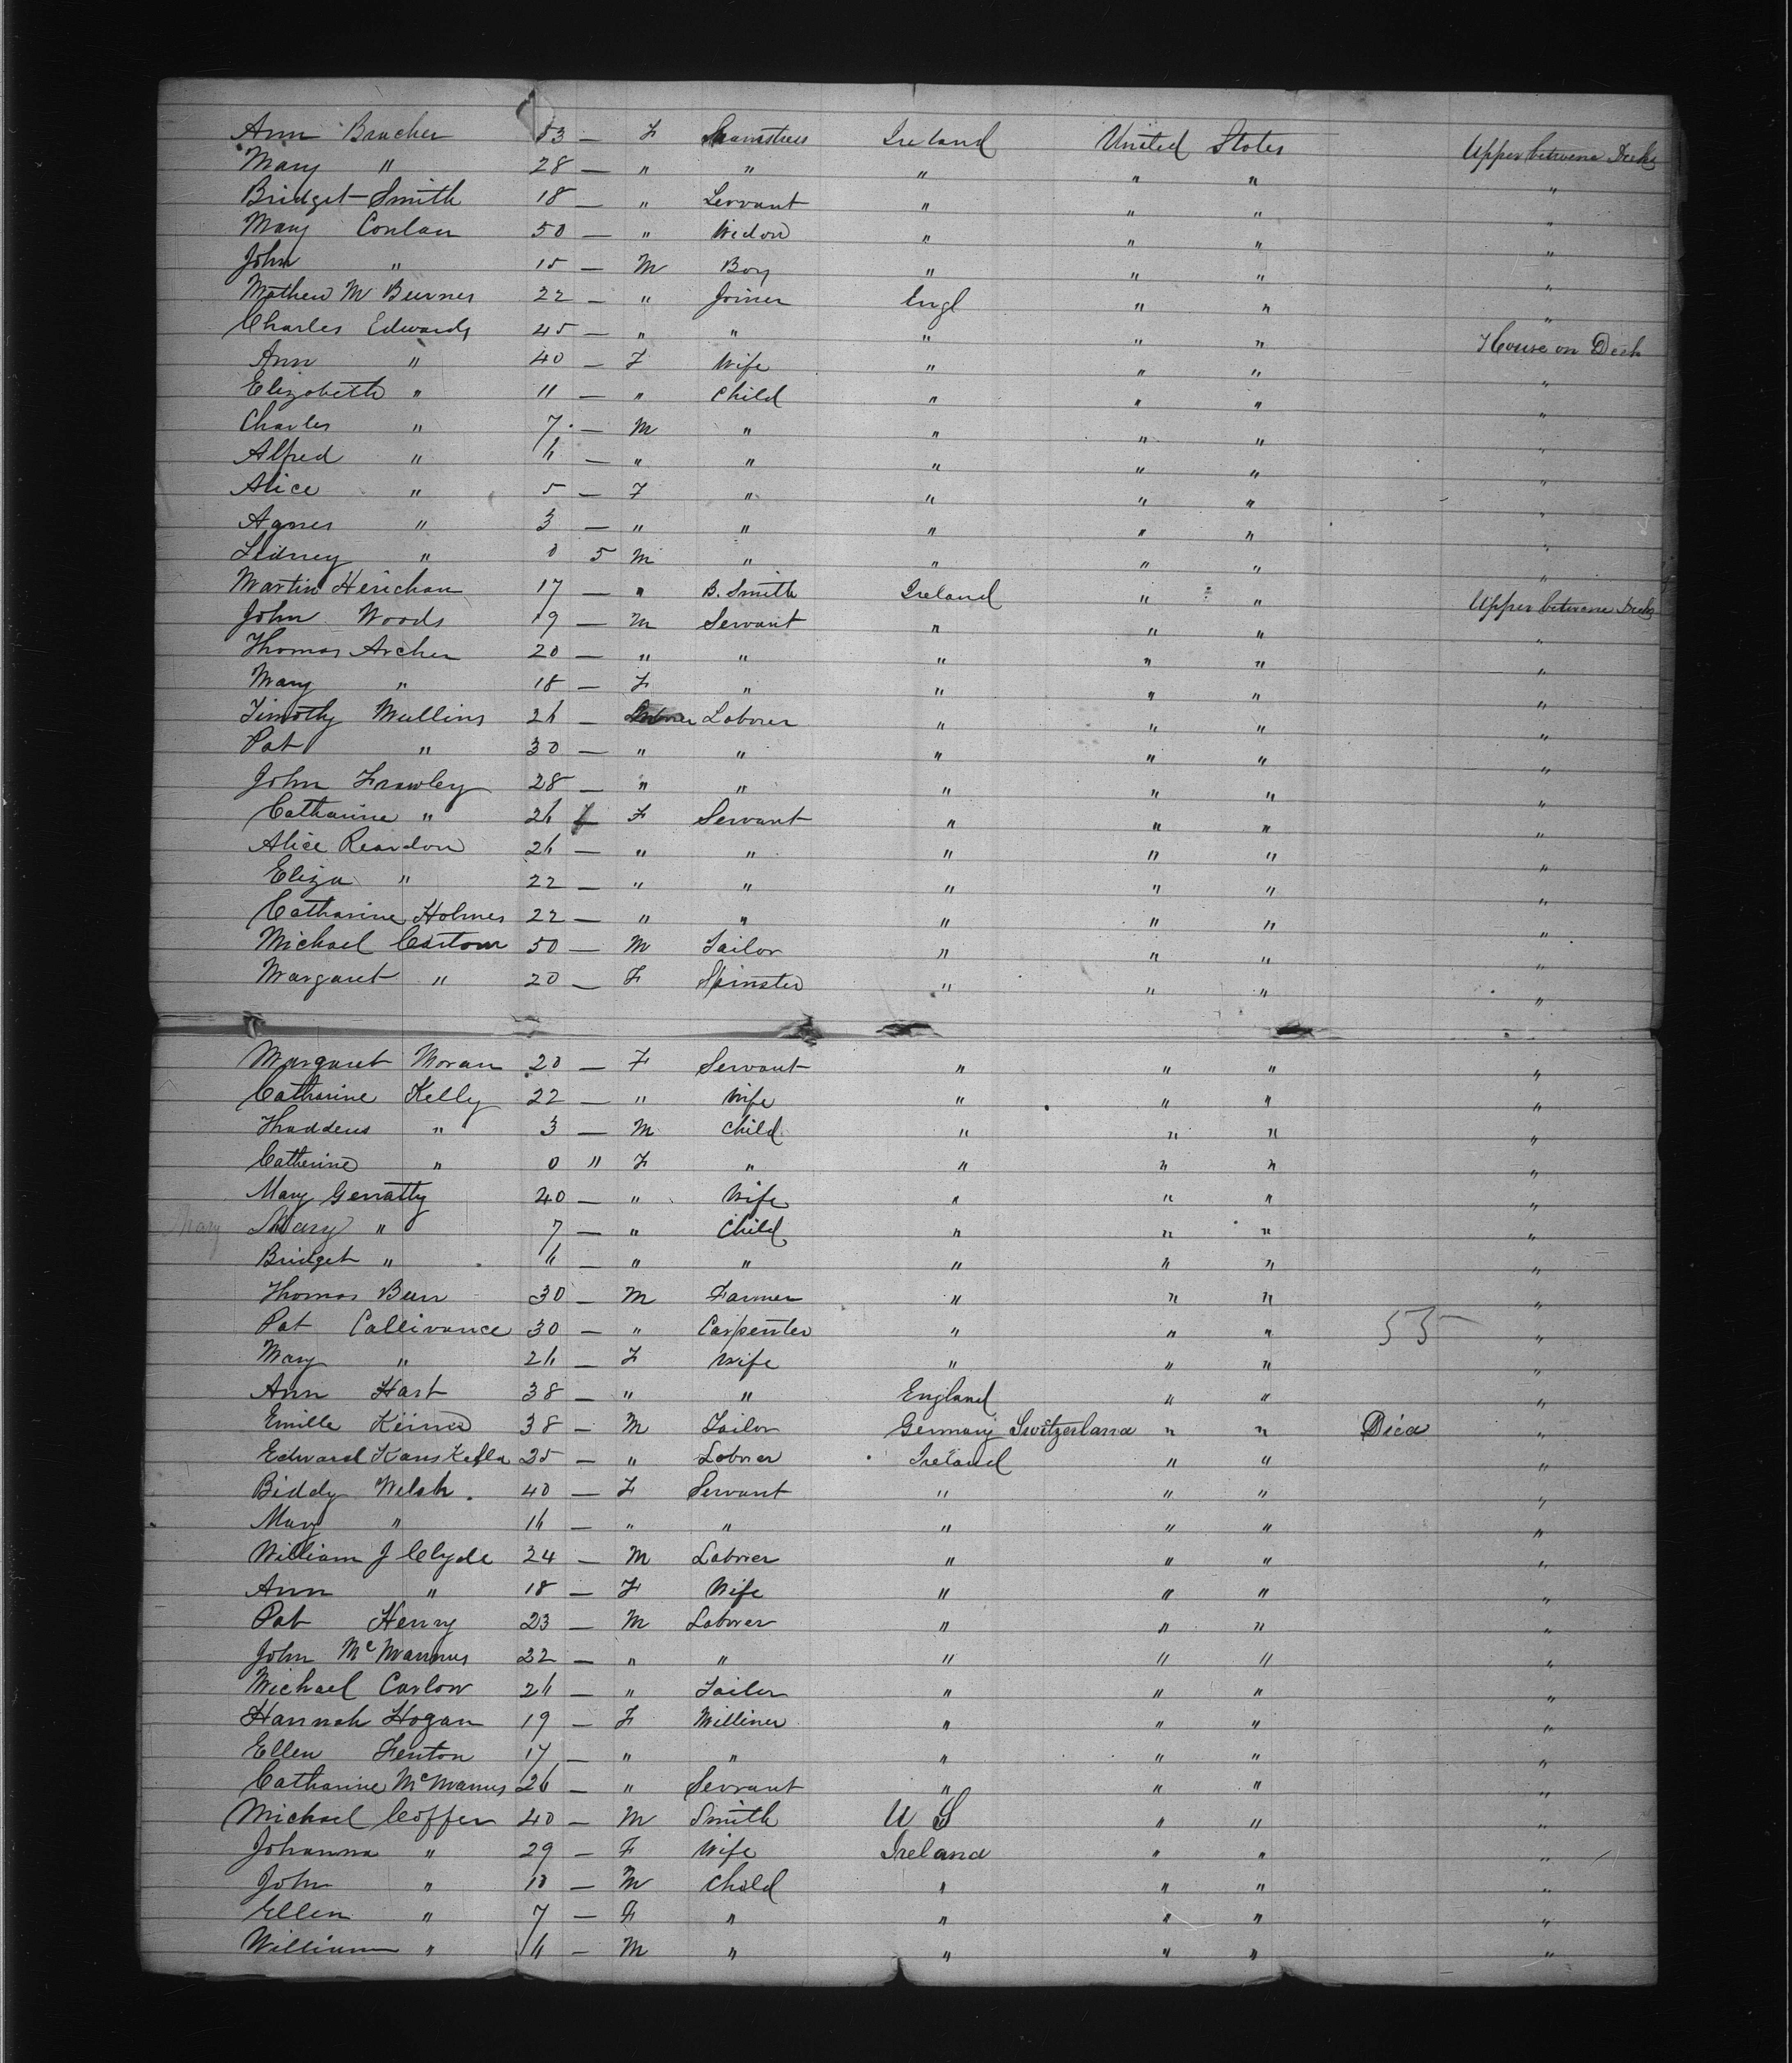 Ann Bracher 53 — F Seamstress Ireland United States Upper betwene Decks
Mary " 28 — " " " " " "
Bridget Smith 18 — " Servant " " " "
Mary Conlan 50 — " Widow " " " "
John " 15 — M Boy " " " "
Mathew M Burnes 22 — " Joiner Engl " " "
Charles Edwards 45 — " " " " " House on Deck
Ann " 40 — F Wife " " " "
Elizabeth " 11 — " Child " " " "
Charles " 7 — M " " " " "
Alfred " 6 — " " " " " "
Alice " 5 — F " " " " "
Agnes " 3 — " " " " " "
Sidney " 0 5 M " " " " "
Martin 17 — " B. Smith Ireland " " Upper betwene Decks
John Woods 19 — M Servant " " " "
Thomas Archer 20 — " " " " " "
Mary " 18 — F " " " " "
Timothy Mullins 26 — Laborer " " " "
Pat " 30 — " " " " " "
John Frawley 28 — " " " " " "
Catharine " 26 F Servant " " " "
Alice Reardon 26 — " " " " " "
Eliza " 22 — " " " " " "
Catharine Holmes 22 — " " " " " "
Michael 50 — M Tailor " " " "
Margaret " 20 — F Spinster " " " "
Margaret Moran 20 — F Servant " " " "
Catharine Kelly 22 — " Wife " " " "
Thaddeus " 3 — M Child " " " "
Catherine " 0 " F " " " " "
Mary Gerratty 40 — " Wife " " " "
Mary Mary " 7 — " Child " " " "
Bridget " 6 — " " " " " "
Thomas Burr 30 — M Farmer " " " "
Pat Callivance 30 — " Carpenter " " " 55 "
Mary " 26 — F Wife " " " "
Ann Hart 38 — " " England " " "
Emille 38 — M Tailor Germany Switzerland " " Died "
Edward 25 — " Laborer Ireland " " "
Biddy Welsh 40 — F Servant " " " "
Mary " 16 — " " " " " "
William J Clyde 24 — M Laborer " " " "
Ann " 18 — F Wife " " " "
Pat Henry 23 — M Laborer " " " "
John McMannus 22 — " " " " " "
Michael Carlow 26 — " Tailor " " " "
Hannah Hogan 19 — F Milliner " " " "
Ellen Fenton 17 — " " " " " "
Catharine McManus 26 — " Servant " " " "
Michael Coffer 40 — M Smith U S " " "
Johanna " 29 — F Wife Ireland " " "
John " 10 — M Child " " " "
Ellen " 7 — F " " " " "
William " 6 — M " " " " "